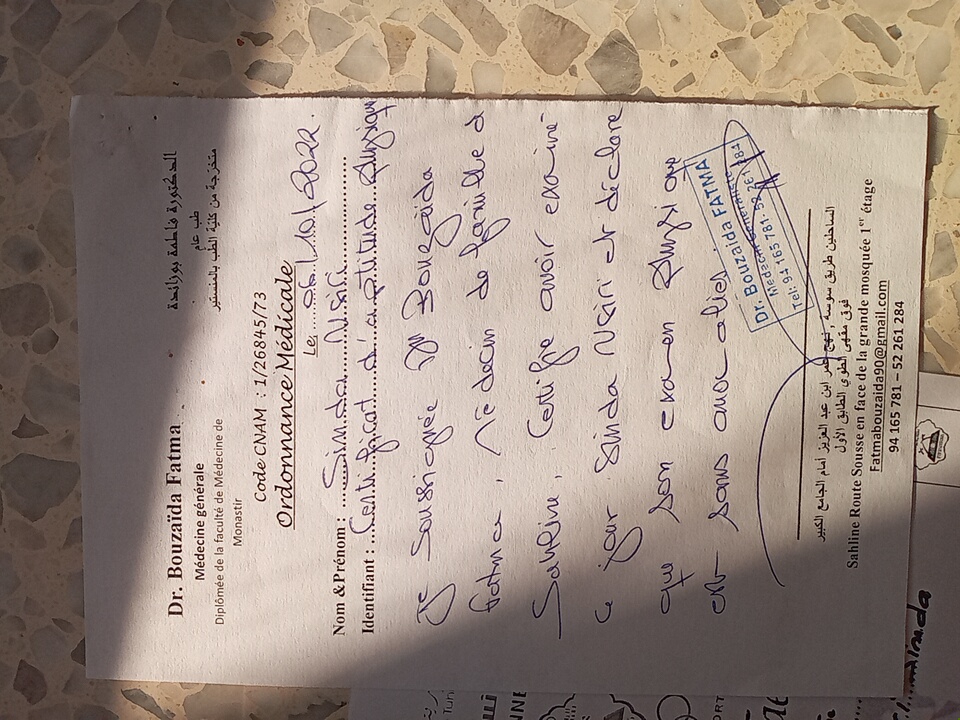 Dr. Bouzaïda Fatma
Médecine générale
Diplômée de la faculté de Médecine de
Monastir
الدكتورة فاطمة بوزائدة
طب عام
متخرجة من كلية الطب بالمنستير
Code CNAM : 1/26845/73
Ordonnance Médicale
Le, 06/10/2022.
Nom &Prénom : Sinda Nsiri
Identifiant : Certificat d'aptitude physique
Je soussignée Dr Bouzaïda
Fatma, Médecin de famille à
Sahline, Certifie avoir examiné
ce jour Sinda Nsiri et déclare
que son examen physique
est sans anomalies
Dr. Bouzaida FATMA
Medecin Generaliste
Tel: 94 165 781- 52 261 284
الساحلين طريق سوسة , نهج عمر ابن عبد العزيز أمام الجامع الكبير
فوق مقهى الطوي الطابق الأول
Sahline Route Sousse en face de la grande mosquée 1er étage
Fatmabouzaida90@gmail.com
94 165 781 – 52 261 284